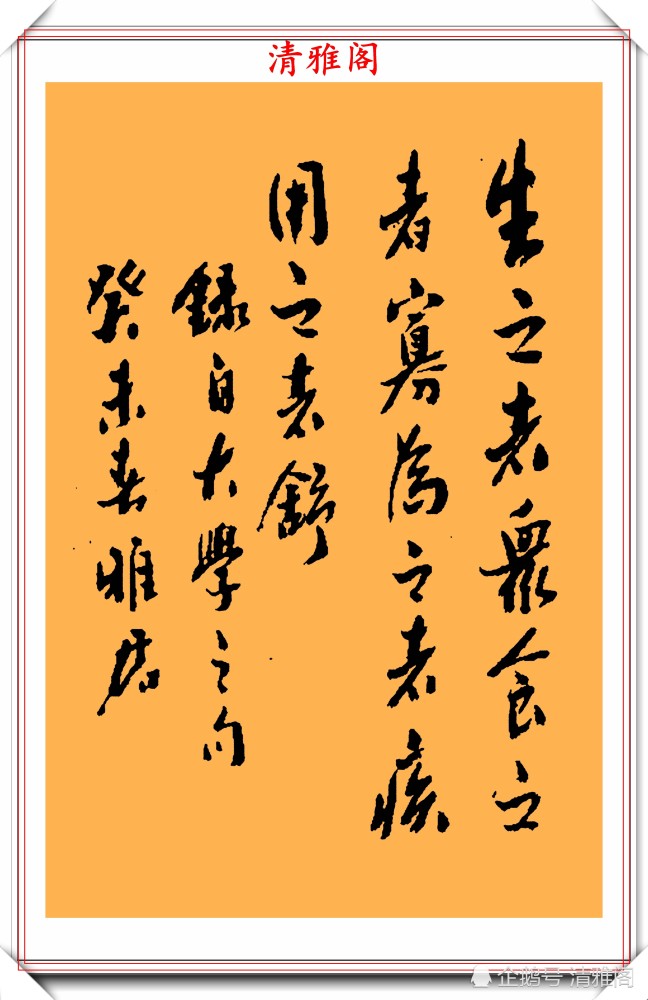 清雅阁
生之者衆食之
者寡為之者疾
用之者舒
録自大學之句
癸未春雅居
企鹅号 清雅阁